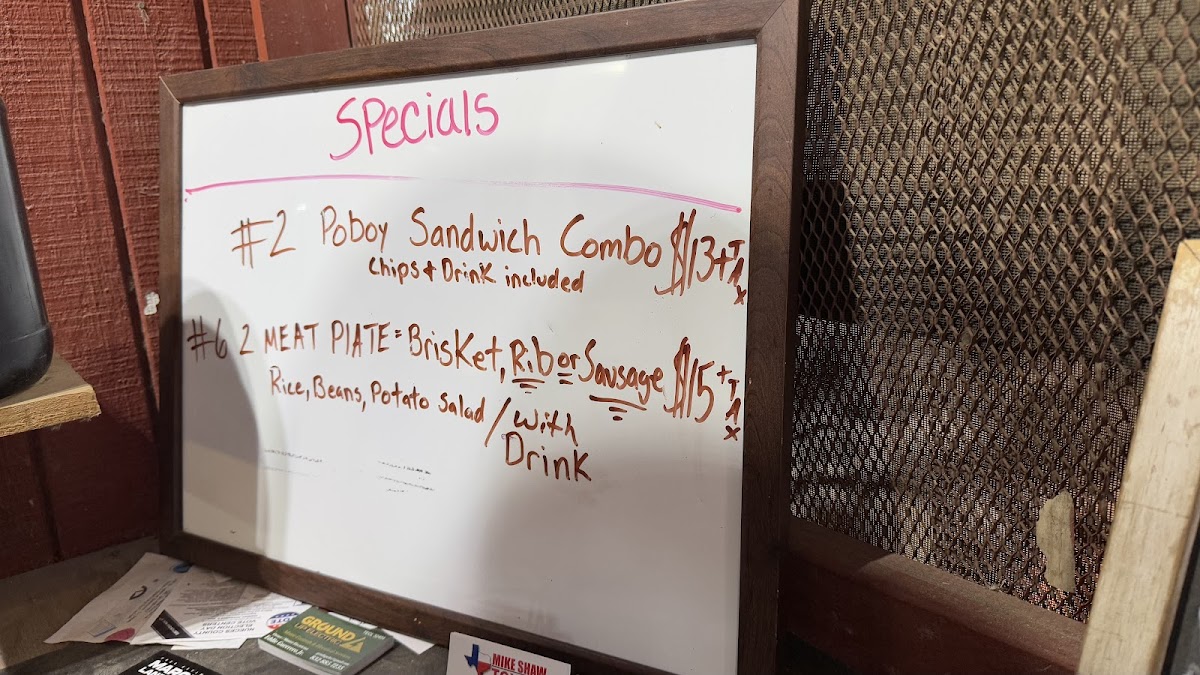 Specials
#2 Poboy Sandwich Combo $13 + TAX
Chips + Drink included
#6 2 MEAT PLATE = Brisket, Rib or Sausage $15 + TAX
Rice, Beans, Potato Salad / with
Drink
NUECES COUNTY
ELECTION DAY
VOTE CENTERS
VOTE
GROUND
MIKE SHAW